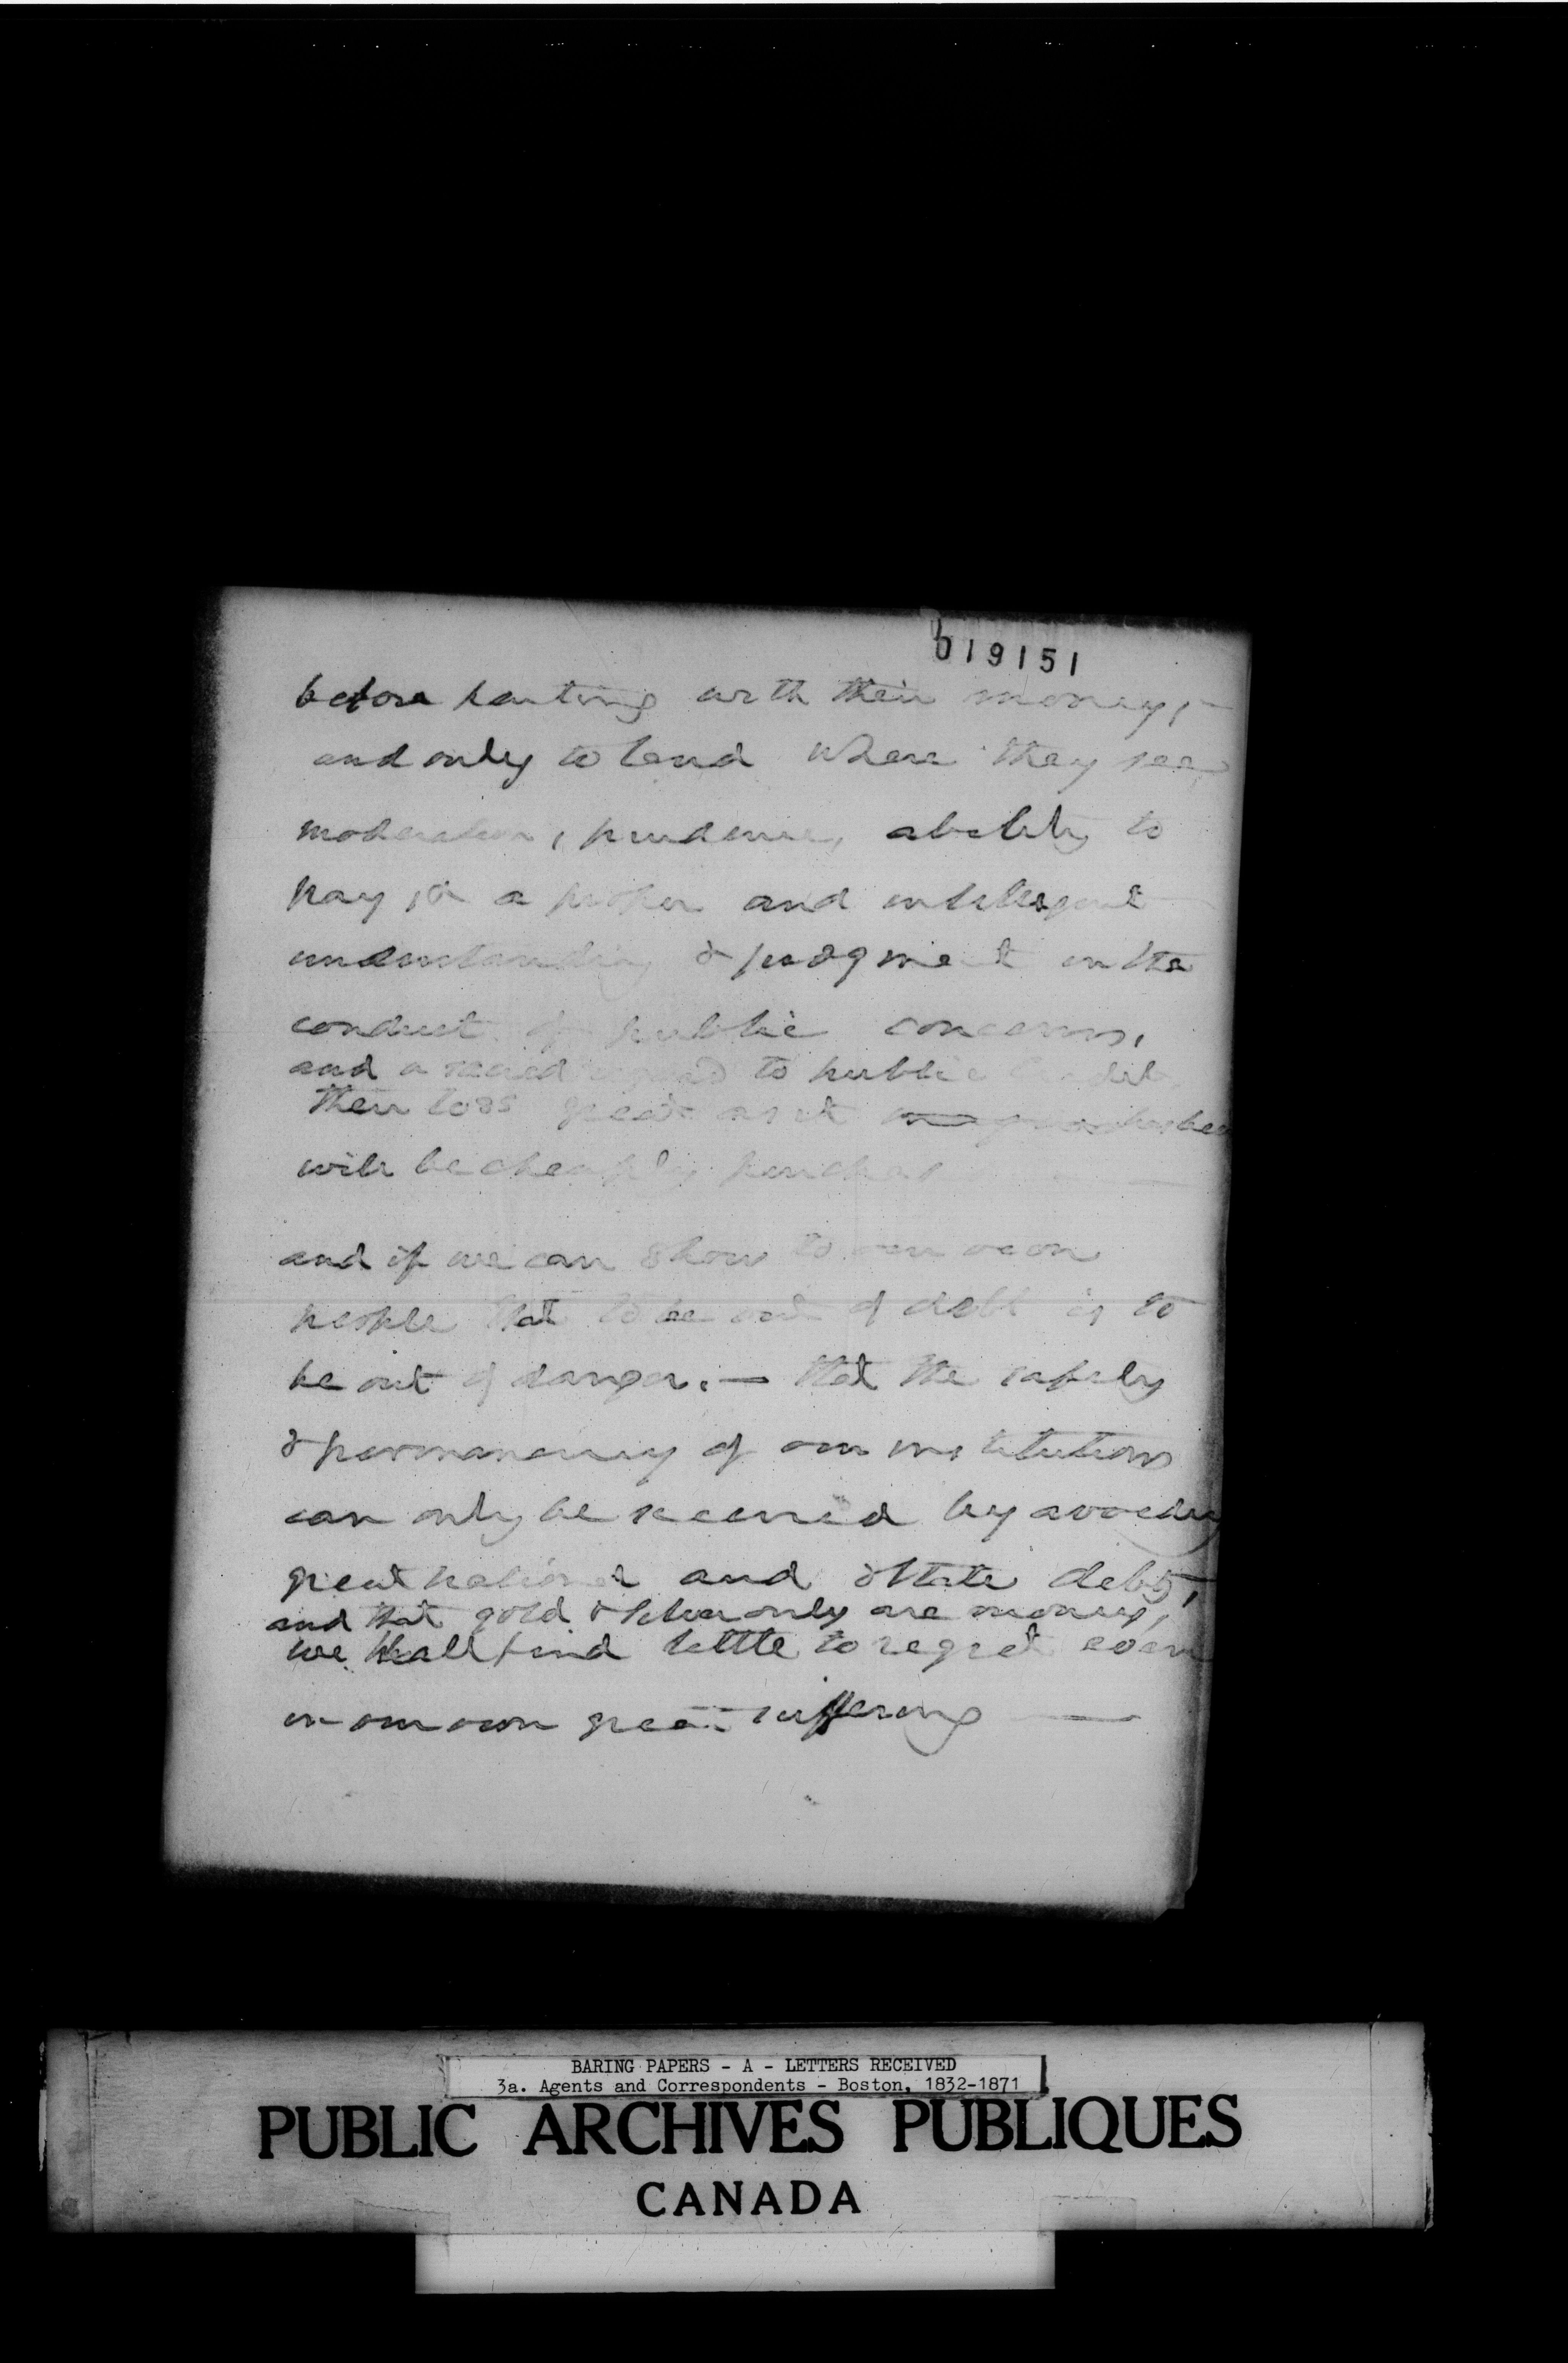 019151
before parting with their money,—
and only to lend where they see
moderation, prudence, ability to
pay, & a proper and intelligent
understanding & judgment in the
conduct of public concerns,
and a sacred regard to public credit
their loss great as it has been
will be cheaply purchased —
and if we can show to our own
people that to be out of debt is to
be out of danger. — that the safety
& permanency of our institutions
can only be secured by avoiding
great national and State debts,
and that gold & silver only are money,
we shall find little to regret even
in our own great suffering —
BARING PAPERS - A - LETTERS RECEIVED
3a. Agents and Correspondents - Boston, 1832-1871
PUBLIC ARCHIVES PUBLIQUES
CANADA